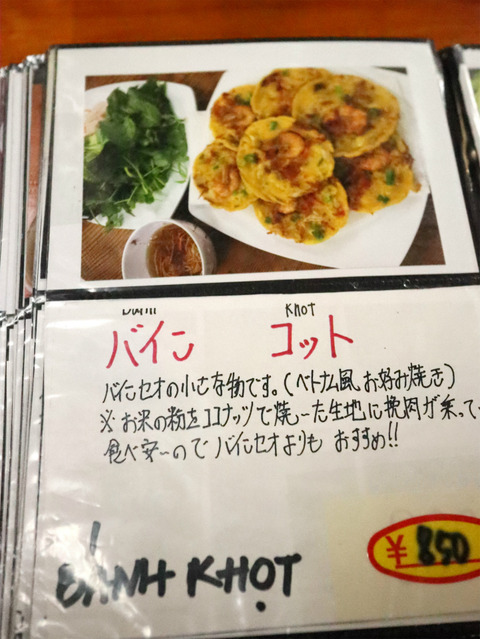 Khot
バイン コット
バインセオの小さな物です。(ベトナム風お好み焼き)
※お米の粉をココナッツで焼〜た生地に挽肉が乗って
食べ安〜のでバインセオよりも おすすめ!!
BÁNH KHỌT
¥850